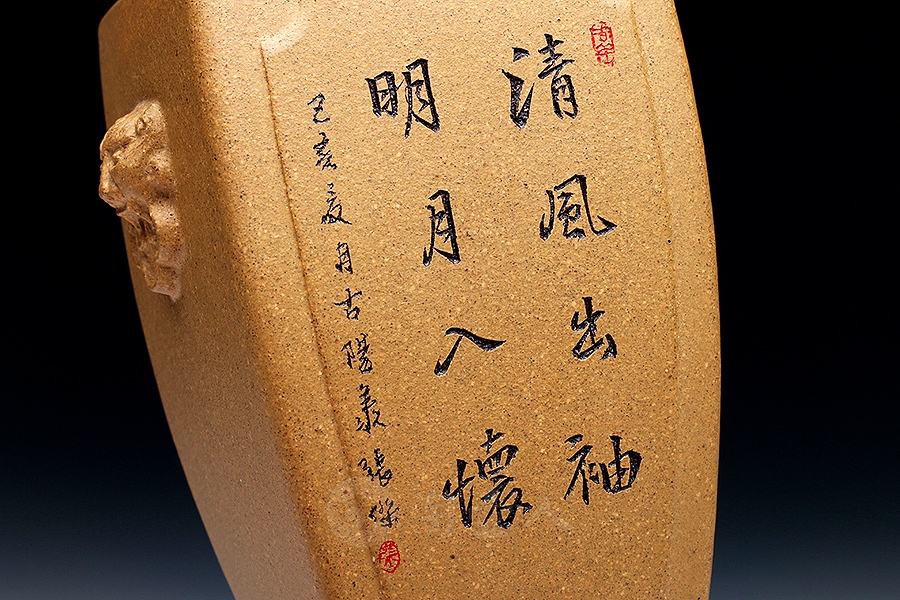 清風出袖
明月入懷
己亥夏月古陽羨張傑